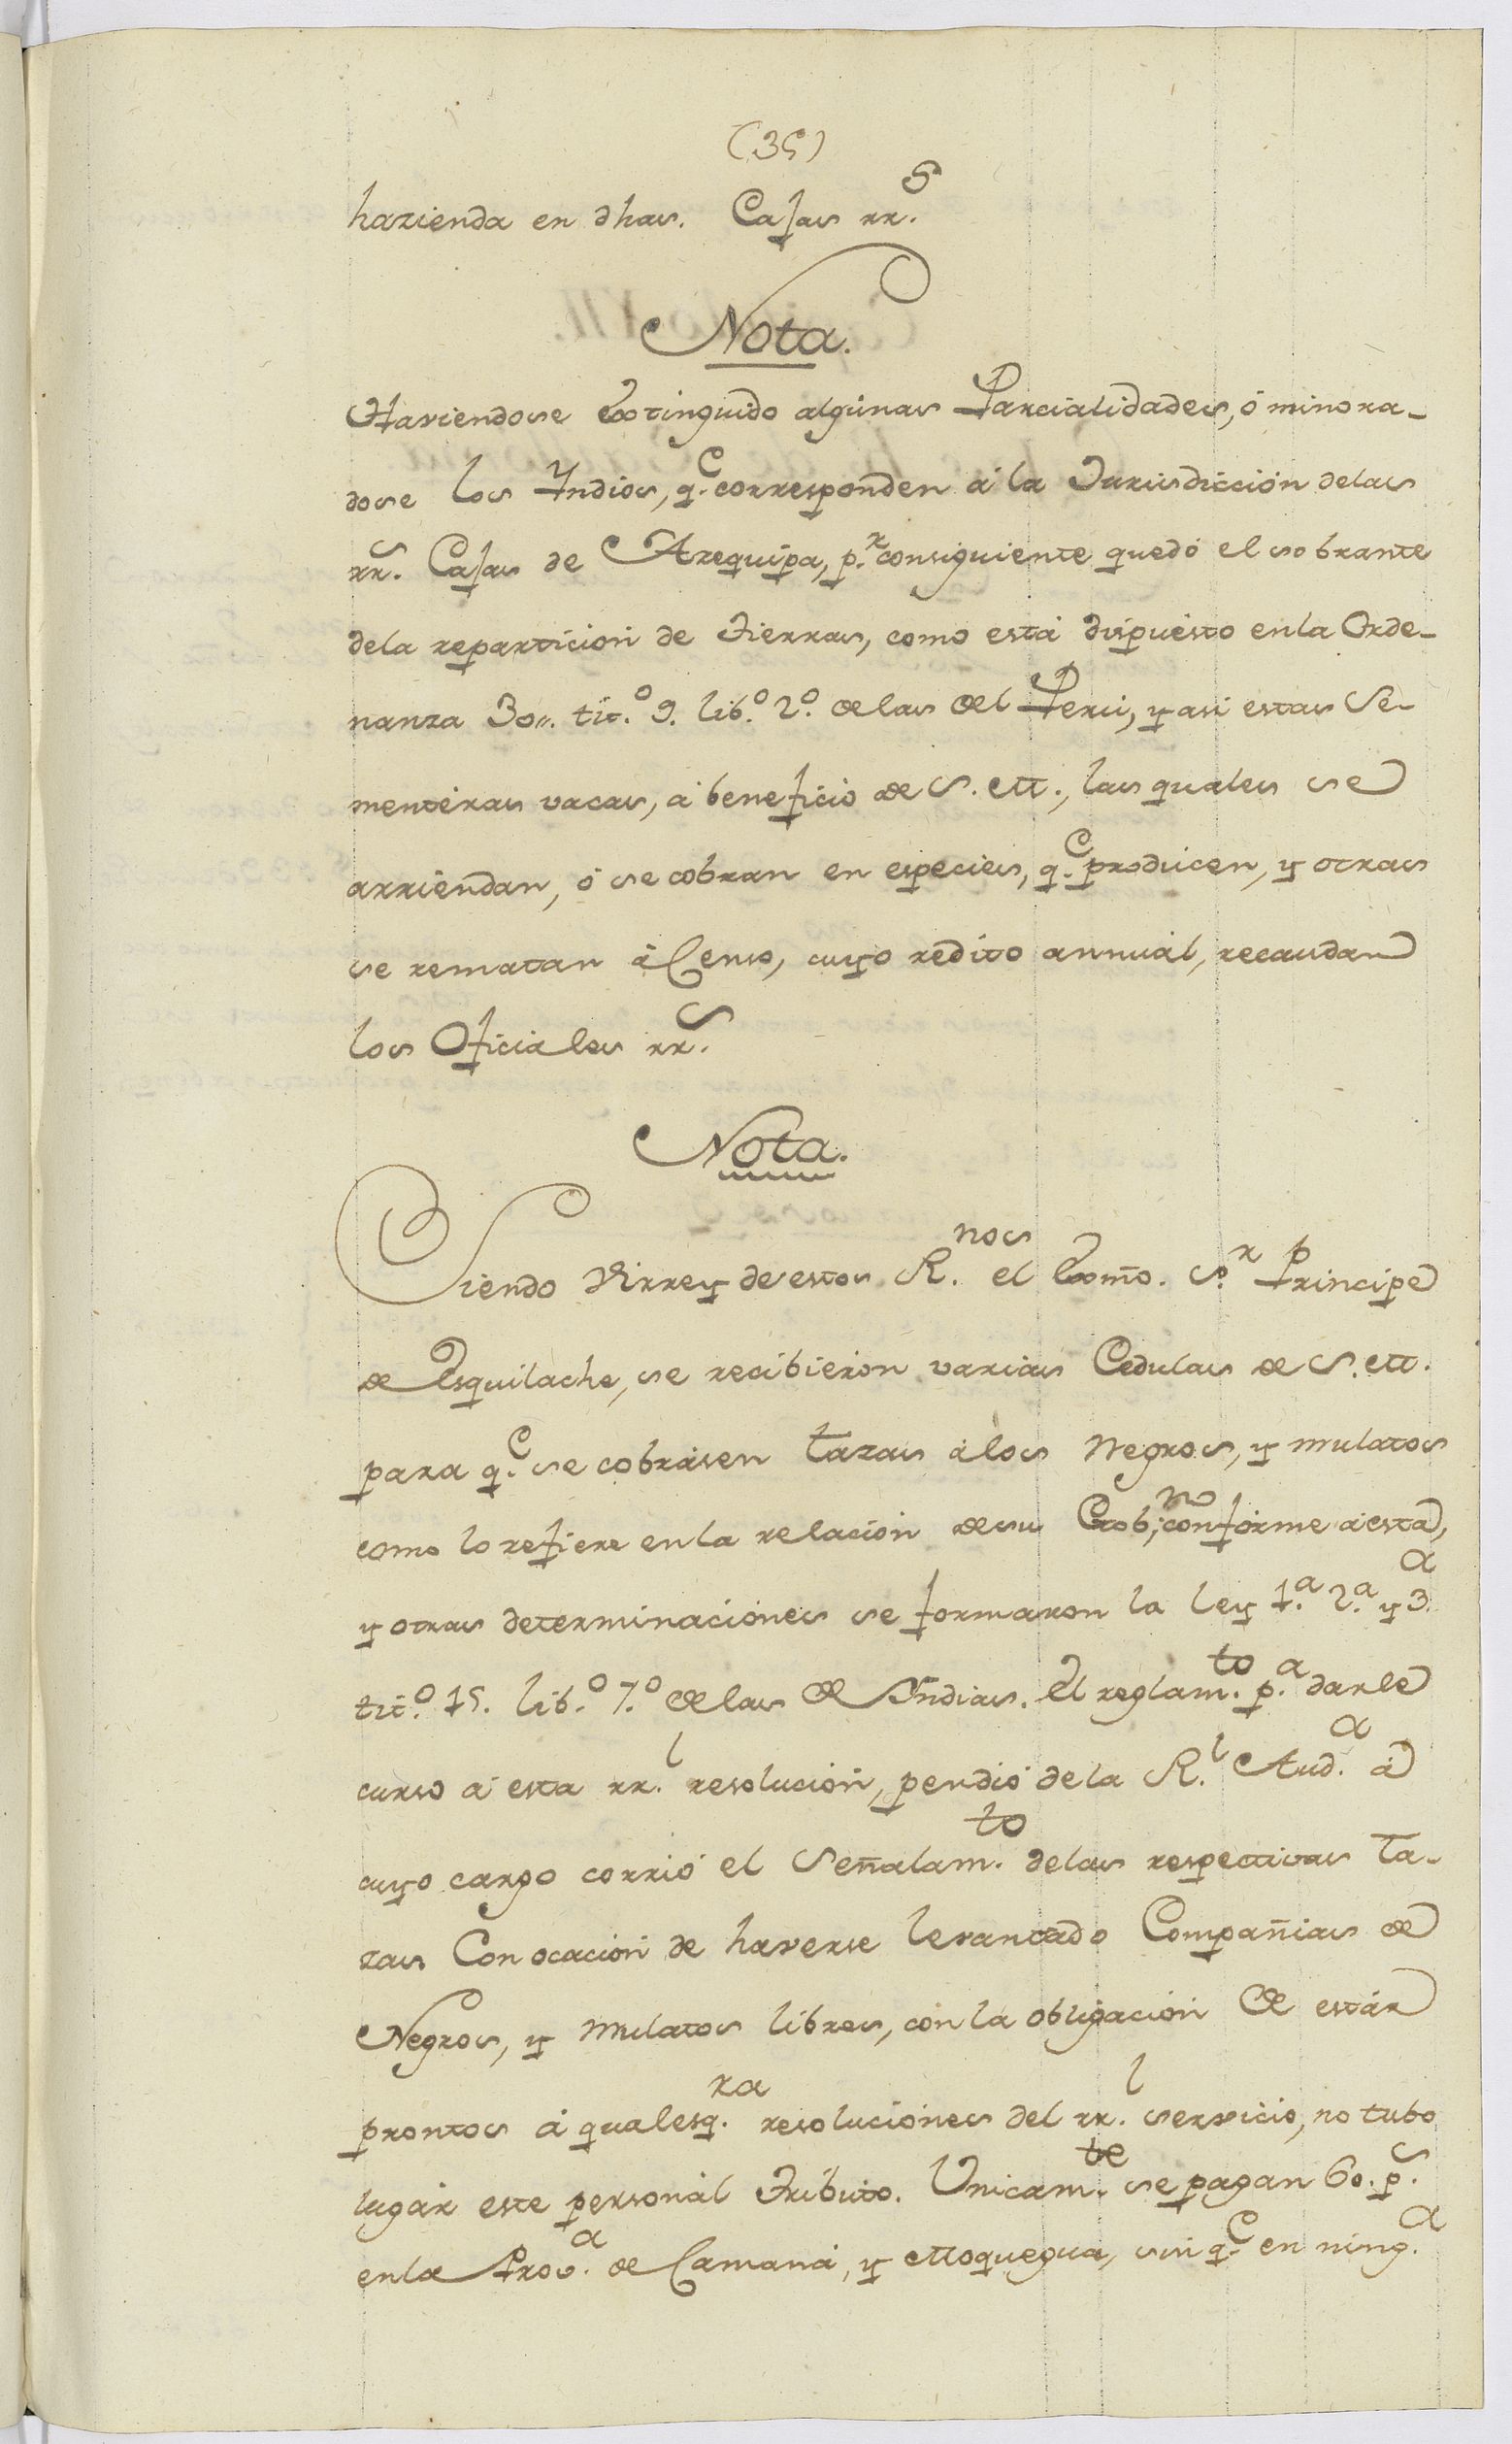 (35)
hazienda en dhas. Cajas rr.s
Nota.
Haviendose Extinguido algunas Parcialidades, ó minora-
dose los Yndios, q.e corresponden á la Jurisdiccion delas
rr.s Cajas de Arequipa, p.r consiguiente quedó el sobrante
dela reparticion de Tierras, como está dispuesto enla Orde-
nanza 30,,. tit.o 9. lib.o 2.o delas del Perú, y asi estas Se-
menteras vacas, á beneficio de S. M., las quales se
arriendan, ó se cobran en especies, q.e producen, y otras
se rematan á Censo, cuyo redito annual, recaudan
los Oficiales rr.s
Nota.
Siendo Virrey de estos R.nos el Exmo. S.r Principe
de Esquilache, se recibieron varias Cedulas de S. M.
para q.e se cobrasen tazas álos Negros, y mulatos
como lo refiere enla relacion desu Gob;no conforme áesta,
y otras determinaciones se formaron la ley 1.a 2.a y 3.a
tit.o 15. lib.o 7.o delas de Yndias. El reglam.to p.a darle
curso á esta rr.l resolucion, pendió dela R.l Aud.a á
cuyo cargo corrió el Señalam.to delas respectivas ta-
zas Con ocacion de haverse levantado Compañias de
Negros, y Mulatos libres, con la obligacion de estár
prontos á qualesq.ra resoluciones del rr.l servicio, no tubo
lugár este personál Tributo. Unicam.te se pagan 60. p.s
enla Prov.a de Camaná, y Moquegua, sin q.e en ning.a